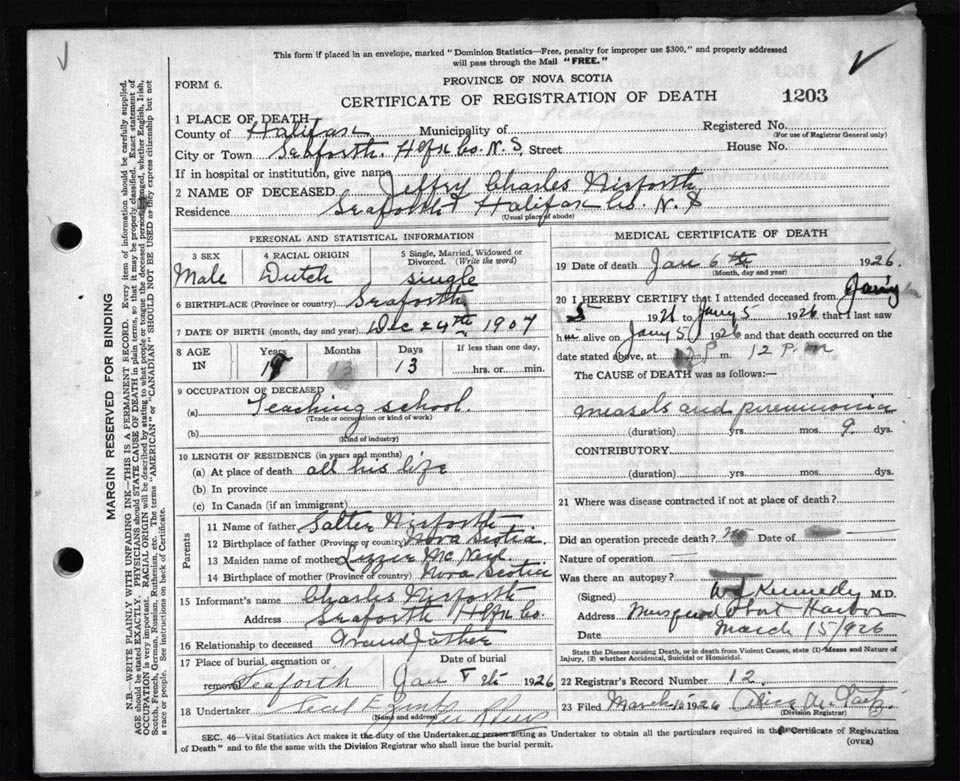 This form if placed in an envelope, marked "Dominion Statistics—Free, penalty for improper use $300," and properly addressed
will pass through the Mail "FREE."
FORM 6.
PROVINCE OF NOVA SCOTIA
CERTIFICATE OF REGISTRATION OF DEATH 1203
1 PLACE OF DEATH
County of Halifax Municipality of Registered No.
(For use of Registrar General only)
City or Town Seaforth. Hfx Co. N.S. Street House No.
If in hospital or institution, give name
2 NAME OF DECEASED Jeffry Charles Nieforth
Residence Seaforth Halifax Co. N.S
(Usual place of abode)
PERSONAL AND STATISTICAL INFORMATION
3 SEX 4 RACIAL ORIGIN 5 Single, Married, Widowed or
Divorced. (Write the word)
Male Dutch single
6 BIRTHPLACE (Province or country) Seaforth
7 DATE OF BIRTH (month, day and year) Dec 24th 1907
8 AGE IN Years Months Days If less than one day,
18 13 hrs. or min.
9 OCCUPATION OF DECEASED
(a) Teaching school.
(Trade or occupation or kind of work)
(b)
(Kind of industry)
10 LENGTH OF RESIDENCE (in years and months)
(a) At place of death all his life
(b) In province
(c) In Canada (if an immigrant)
Parents
11 Name of father Salter Nieforth
12 Birthplace of father (Province or country) Nova Scotia
13 Maiden name of mother Lizzie Mc
14 Birthplace of mother (Province or country) Nova Scotia
15 Informant's name Charles Nieforth
Address Seaforth Hfx Co
16 Relationship to deceased Grandfather
17 Place of burial, cremation or Date of burial
removal Seaforth Jan 8th 1926
18 Undertaker Cecil E
(Name and address)
MEDICAL CERTIFICATE OF DEATH
19 Date of death Jan 6th 1926.
(Month, day and year)
20 I HEREBY CERTIFY that I attended deceased from Jany
5 1926 to Jany 5 1926 that I last saw
him alive on Jany 5 1926 and that death occurred on the
date stated above, at 12 P. m. 12 P.m
The CAUSE of DEATH was as follows:—
measels and pneumonia
(duration) yrs. mos. 9 dys.
CONTRIBUTORY
(duration) yrs. mos. dys.
21 Where was disease contracted if not at place of death?
Did an operation precede death? no Date of
Nature of operation
Was there an autopsy?
(Signed) W J Kennedy M.D.
Address Musquodoboit Harbor
Date March 1 5/926
State the Disease causing Death, or in death from Violent Causes, state (1) Means and Nature of
Injury, (2) whether Accidental, Suicidal or Homicidal.
22 Registrar's Record Number 12.
23 Filed March 1926
(Division Registrar)
SEC. 46—Vital Statistics Act makes it the duty of the Undertaker or person acting as Undertaker to obtain all the particulars required in the Certificate of Registration
of Death" and to file the same with the Division Registrar who shall issue the burial permit. (OVER)
MARGIN RESERVED FOR BINDING
N.B.—WRITE PLAINLY WITH UNFADING INK—THIS IS A PERMANENT RECORD. Every item of information should be carefully supplied.
AGE should be stated EXACTLY. PHYSICIANS should STATE CAUSE OF DEATH in plain terms, so that it may be properly classified. Exact statement of
OCCUPATION is very important. RACIAL ORIGIN will be described by stating to what people or tongue the deceased person belonged, whether English, Irish,
Scotch, French, German, Russian, Ruthenian, etc. The terms "AMERICAN" or "CANADIAN" SHOULD NOT BE USED as they express citizenship but not
a race or people. See instructions on back of Certificate.